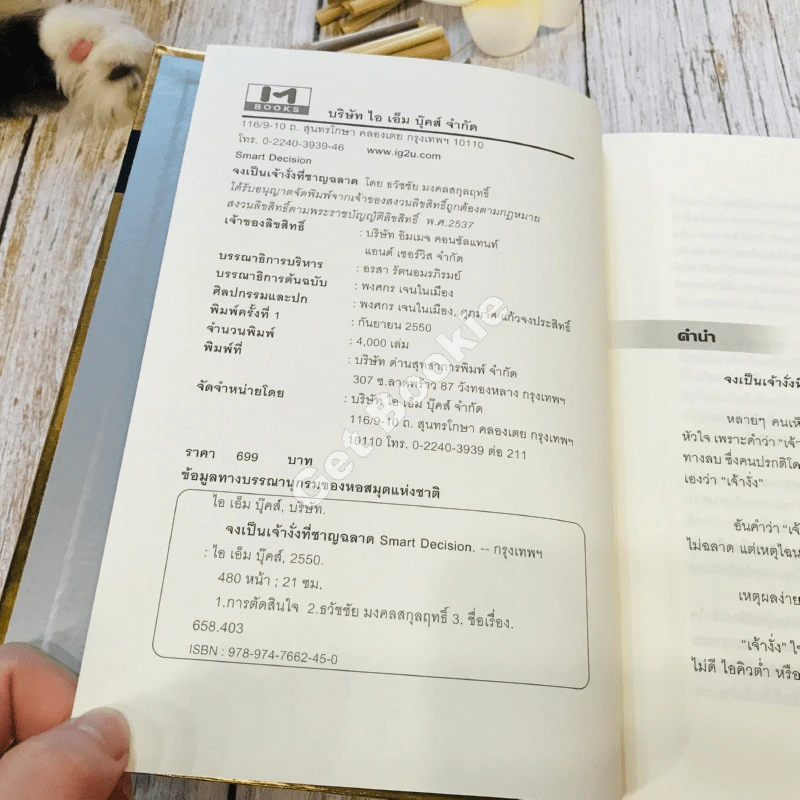 IM
BOOKS
บริษัท ไอ เอ็ม บุ๊คส์ จำกัด
116/9-10 ถ. สุนทรโกษา คลองเตย กรุงเทพฯ 10110
โทร. 0-2240-3939-46 www.ig2u.com
Smart Decision
จงเป็นเจ้างั่งที่ชาญฉลาด โดย ธวัชชัย มงคลสกุลฤทธิ์
ได้รับอนุญาตจัดพิมพ์จากเจ้าของสงวนลิขสิทธิ์ถูกต้องตามกฎหมาย
สงวนลิขสิทธิ์ตามพระราชบัญญัติลิขสิทธิ์ พ.ศ.2537
เจ้าของลิขสิทธิ์ : บริษัท อิมเมจ คอนซัลแทนท์
แอนด์ เซอร์วิส จำกัด
บรรณาธิการบริหาร : อรสา รัตนอมรภิรมย์
บรรณาธิการต้นฉบับ : พงศกร เจนในเมือง
ศิลปกรรมและปก : พงศกร เจนในเมือง, ศุภมาศ แก้วจงประสิทธิ์
พิมพ์ครั้งที่ 1 : กันยายน 2550
จำนวนพิมพ์ : 4,000 เล่ม
พิมพ์ที่ : บริษัท ด่านสุทธาการพิมพ์ จำกัด
307 ซ.ลาดพร้าว 87 วังทองหลาง กรุงเทพฯ
จัดจำหน่ายโดย : บริษัท ไอ เอ็ม บุ๊คส์ จำกัด
116/9-10 ถ. สุนทรโกษา คลองเตย กรุงเทพฯ
10110 โทร. 0-2240-3939 ต่อ 211
ราคา 699 บาท
ข้อมูลทางบรรณานุกรมของหอสมุดแห่งชาติ
ไอ เอ็ม บุ๊คส์, บริษัท.
จงเป็นเจ้างั่งที่ชาญฉลาด Smart Decision. -- กรุงเทพฯ
: ไอ เอ็ม บุ๊คส์, 2550.
480 หน้า ; 21 ซม.
1.การตัดสินใจ 2.ธวัชชัย มงคลสกุลฤทธิ์ 3. ชื่อเรื่อง.
658.403
ISBN : 978-974-7662-45-0
Get Bookie
คำนำ
จงเป็นเจ้างั่งที่
หลายๆ คนเห็
หัวใจ เพราะคำว่า "เจ้า
ทางลบ ซึ่งคนปรกติโด
เองว่า "เจ้างั่ง"
อันคำว่า "เจ้
ไม่ฉลาด แต่เหตุไฉน
เหตุผลง่าย
"เจ้างั่ง" ใช
ไม่ดี ไอคิวต่ำ หรือ